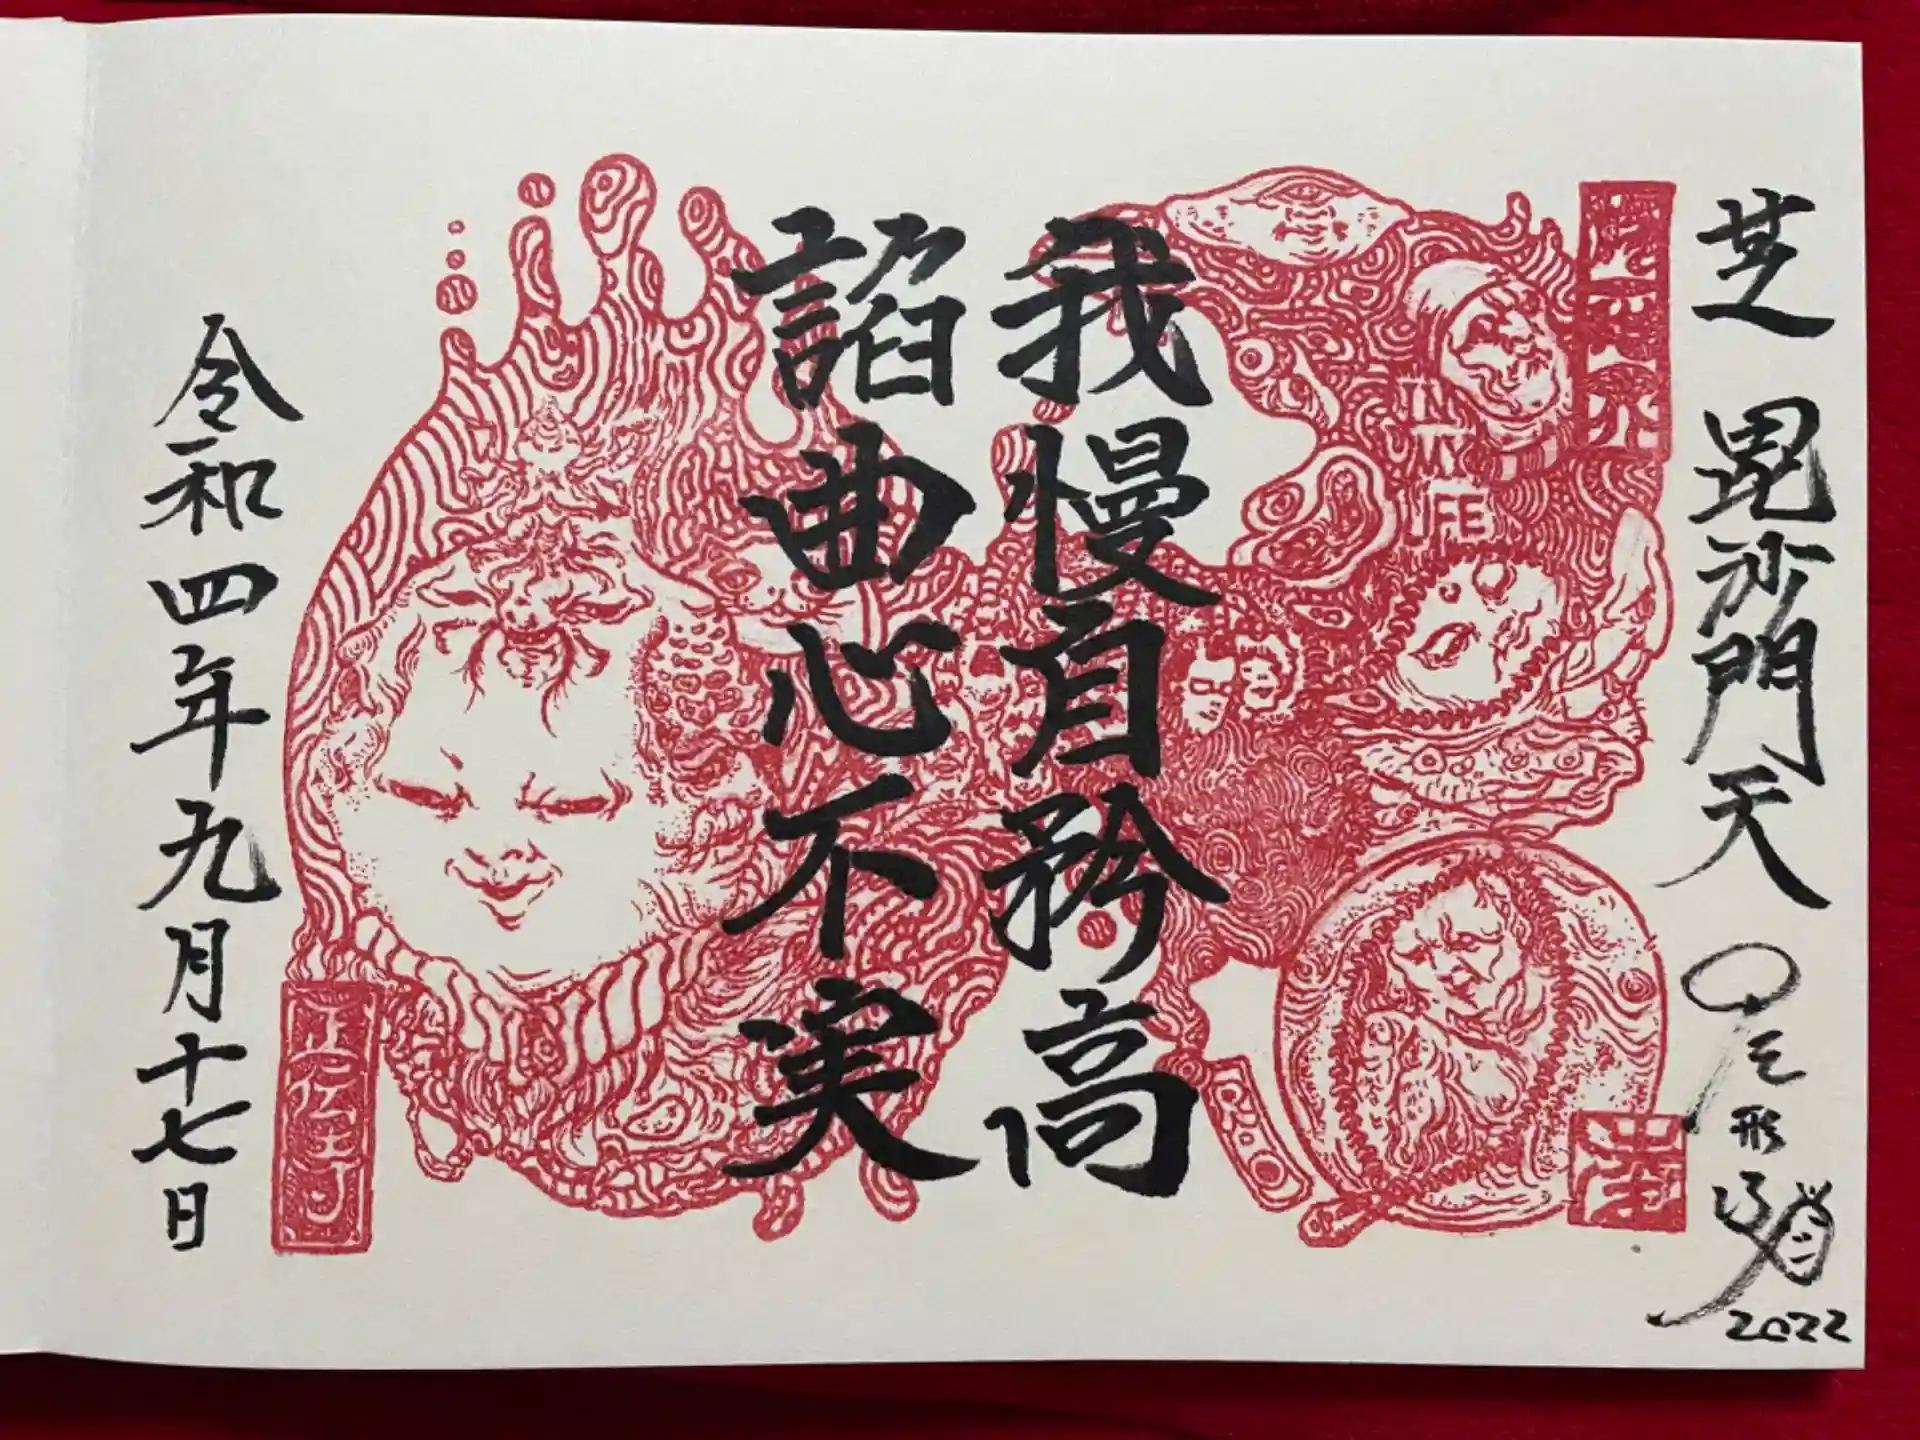 芝 毘沙門天
我慢自矜高
諂曲心不実
令和四年九月十七日
正伝寺
IN
MY
2022